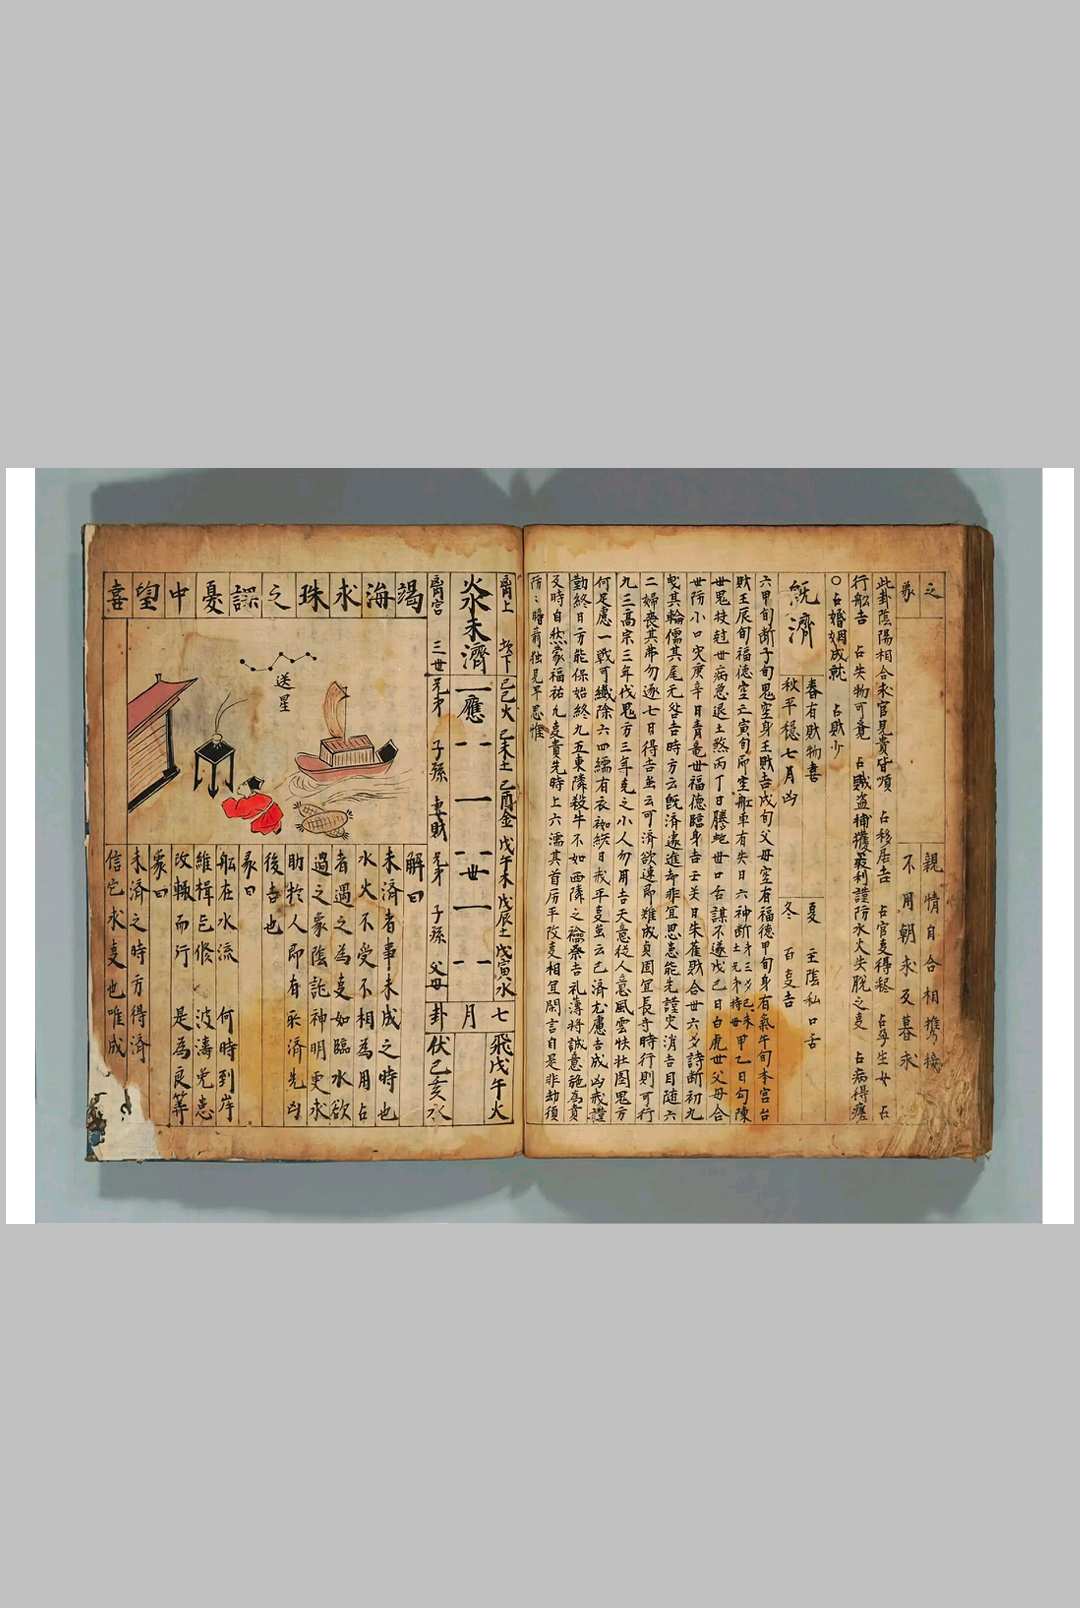 之
彖
親情自合相携接
不用朝求及暮求
此卦陰陽相合求官見貴皆順 占移居吉 占官事得輕 占孕生女 占
行舩吉 占失物可覓 占賊盜捕獲 謹防水火失脫之事 占病得瘥
○占婚姻成就 占財少
既濟
春有財物喜
秋平穩七月凶
夏 主陰私口舌
冬 百事吉
六甲旬斷子旬鬼空身王財吉戌旬父母空有福德甲旬身有氣午旬本宮
財王辰旬福德空 寅旬 舡車有失日六神斷 甲乙日勾陳
世鬼 世病急退土煞丙丁日騰蛇世口舌謀不遂戊己日白虎世父母合
世防小口灾庚辛日青龍世福德臨身吉壬癸日朱雀財合世六爻詩斷初九
曳其輪濡其尾无咎吉時方云既濟遠進却非宜思患能先謹灾消吉自随六
二婦喪其茀勿逐七日得吉 云可濟欲速即難成貞固宜長守時行則可行
九三高宗三年伐鬼方三年克之小人勿用吉天意従人意風雲快壯圖鬼方
何足慮一戰可纖除六四繻有衣袽終日戒平 云已濟尤慮吉成凶戒謹
勤終日方能保始終九五東隣殺牛不如西隣之禴祭吉礼薄將誠意施爲貴
及時自然蒙福祐凡事貴先時上六濡其首厉平改變相宜閑言自是非劫須
防 獨見早思惟
離上 坎下 己巳火 己未土 己酉金 戊午火 戊辰土 戊寅木 七 飛戊午火
未濟 應 世 月
離宮 三世 兄弟 子孫 妻財 兄弟 子孫 父母 卦 伏己亥水
竭海求珠之誤憂中望喜
送星
解曰
未濟者事未成之時也
水火不受不相爲用占
者遇之爲事如臨水欲
過之象陰詑神明更求
助於人即有所濟先凶
後吉也
彖曰
舩在水流 何時到岸
維楫已修 波濤免患
改轍而行 是爲良筭
象曰
未濟之時方得濟
信它求事也唯成